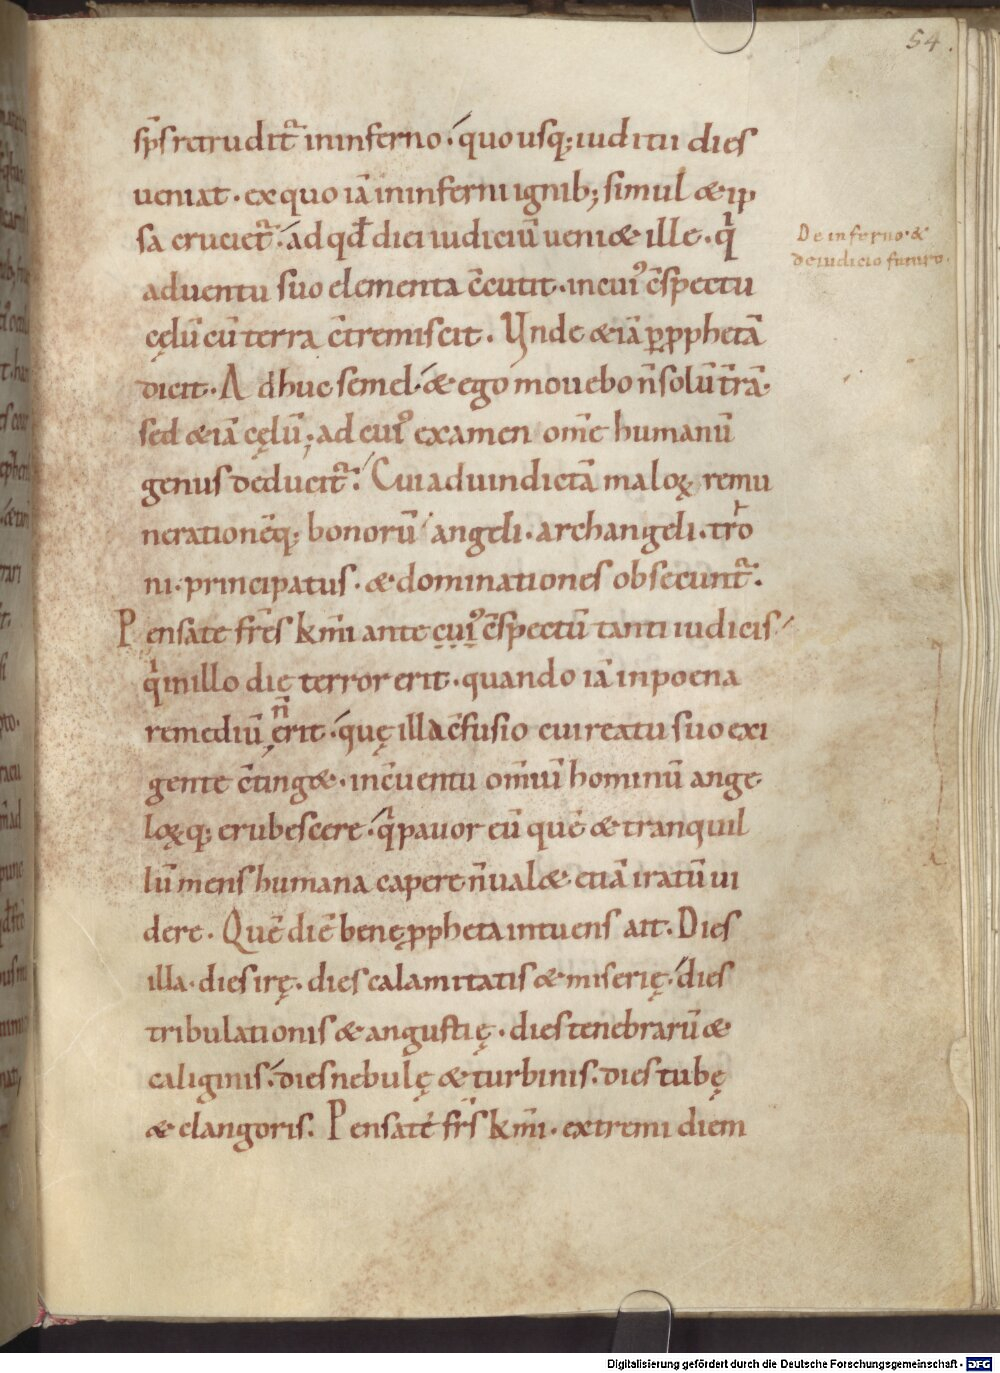 54.
sp̄s retrudit᷑ in inferno · quo usq; iuditii dies
ueniat · ex quo iā in inferni ignib; simul & ip
sa cruciet᷑ · ad qđ dici iudiciū ueni& ille · qͥ
aduentu suo elementa c̄cutit · in cuiꝰ c̄spectu
cęlū cū terra c̄tremiscit · Unde & iā ꝑ ꝓphetā
dicit · Adhuc semel · & ego mouebo n̄ solū t̄rā ·
sed & iā cęlū ; ad cuiꝰ examen om̄e humanū
genus deducit᷑ · Cui ad uindictā maloꝝ remu
nerationēq; bonorū angeli · archangeli · tro
ni · principatus · & dominationes obsecunt᷑ ·
Pensate fr̄es km̄i ante cuiꝰ c̄spectū tanti iudicis
qͥ in illo dię terror erit · quando iā in poena
remediū n̄ erit · quę illa c̄fusio cui reatu suo exi
gente c̄ting& · in c̄uentu om̄iū hominū ange
loꝝq; erubescere · qͥ pauor eū quē & tranquil
lū mens humana capere n̄ ual& · etiā iratū ui
dere · Quē diē bene ꝓpheta intuens ait · Dies
illa · dies irę · dies calamitatis & miserię · dies
tribulationis & angustię · dies tenebrarū &
caliginis · dies nebulę & turbinis · dies tubę
& clangoris · Pensate fr̄s km̄i · extremi diem
De inferno · &
de iudicio futuro ·
Digitalisierung gefördert durch die Deutsche Forschungsgemeinschaft - DFG